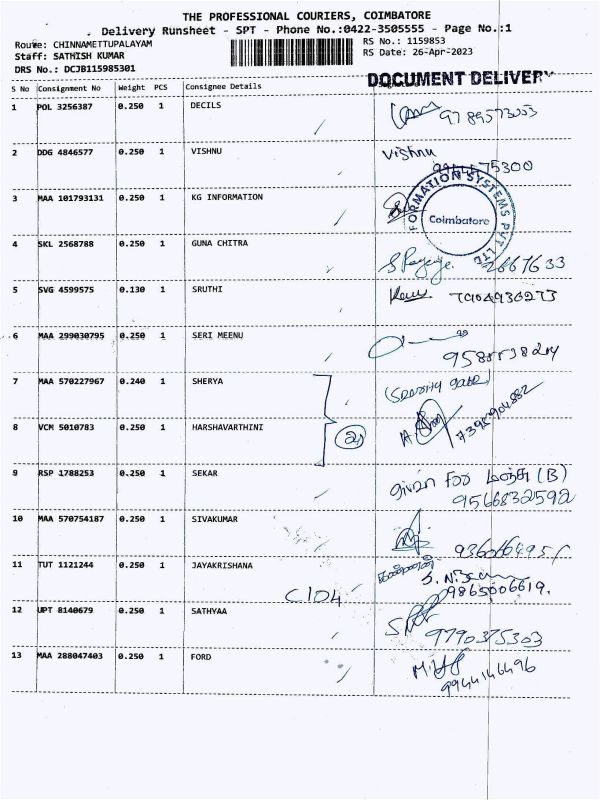 THE PROFESSIONAL COURIERS, COIMBATORE
Delivery Runsheet - SPT - Phone No.:0422-3505555 - Page No.:1
Route: CHINNAMETTUPALAYAM RS No.: 1159853
Staff: SATHISH KUMAR RS Date: 26-Apr-2023
DRS No.: DCJB115985301
DOCUMENT DELIVERY
S No Consignment No Weight PCS Consignee Details
1 POL 3256387 0.250 1 DECILS 9789573003
2 DDG 4846577 0.250 1 VISHNU Vishnu
3 MAA 101793131 0.250 1 KG INFORMATION
FORMATION SYSTEMS PVT LTD
Coimbatore
4 SKL 2568788 0.250 1 GUNA CHITRA 2667633
5 SVG 4599575 0.130 1 SRUTHI 7904930273
6 MAA 299030795 0.250 1 SERI MEENU
7 MAA 570227967 0.240 1 SHERYA
8 VCM 5010783 0.250 1 HARSHAVARTHINI 7395904882
9 RSP 1788253 0.250 1 SEKAR given For மஞ்சு (B)
9566832592
10 MAA 570754187 0.250 1 SIVAKUMAR
11 TUT 1121244 0.250 1 JAYAKRISHANA
C104 9865006619.
12 UPT 8140679 0.250 1 SATHYAA
9790375303
13 MAA 288047403 0.250 1 FORD
9944146496